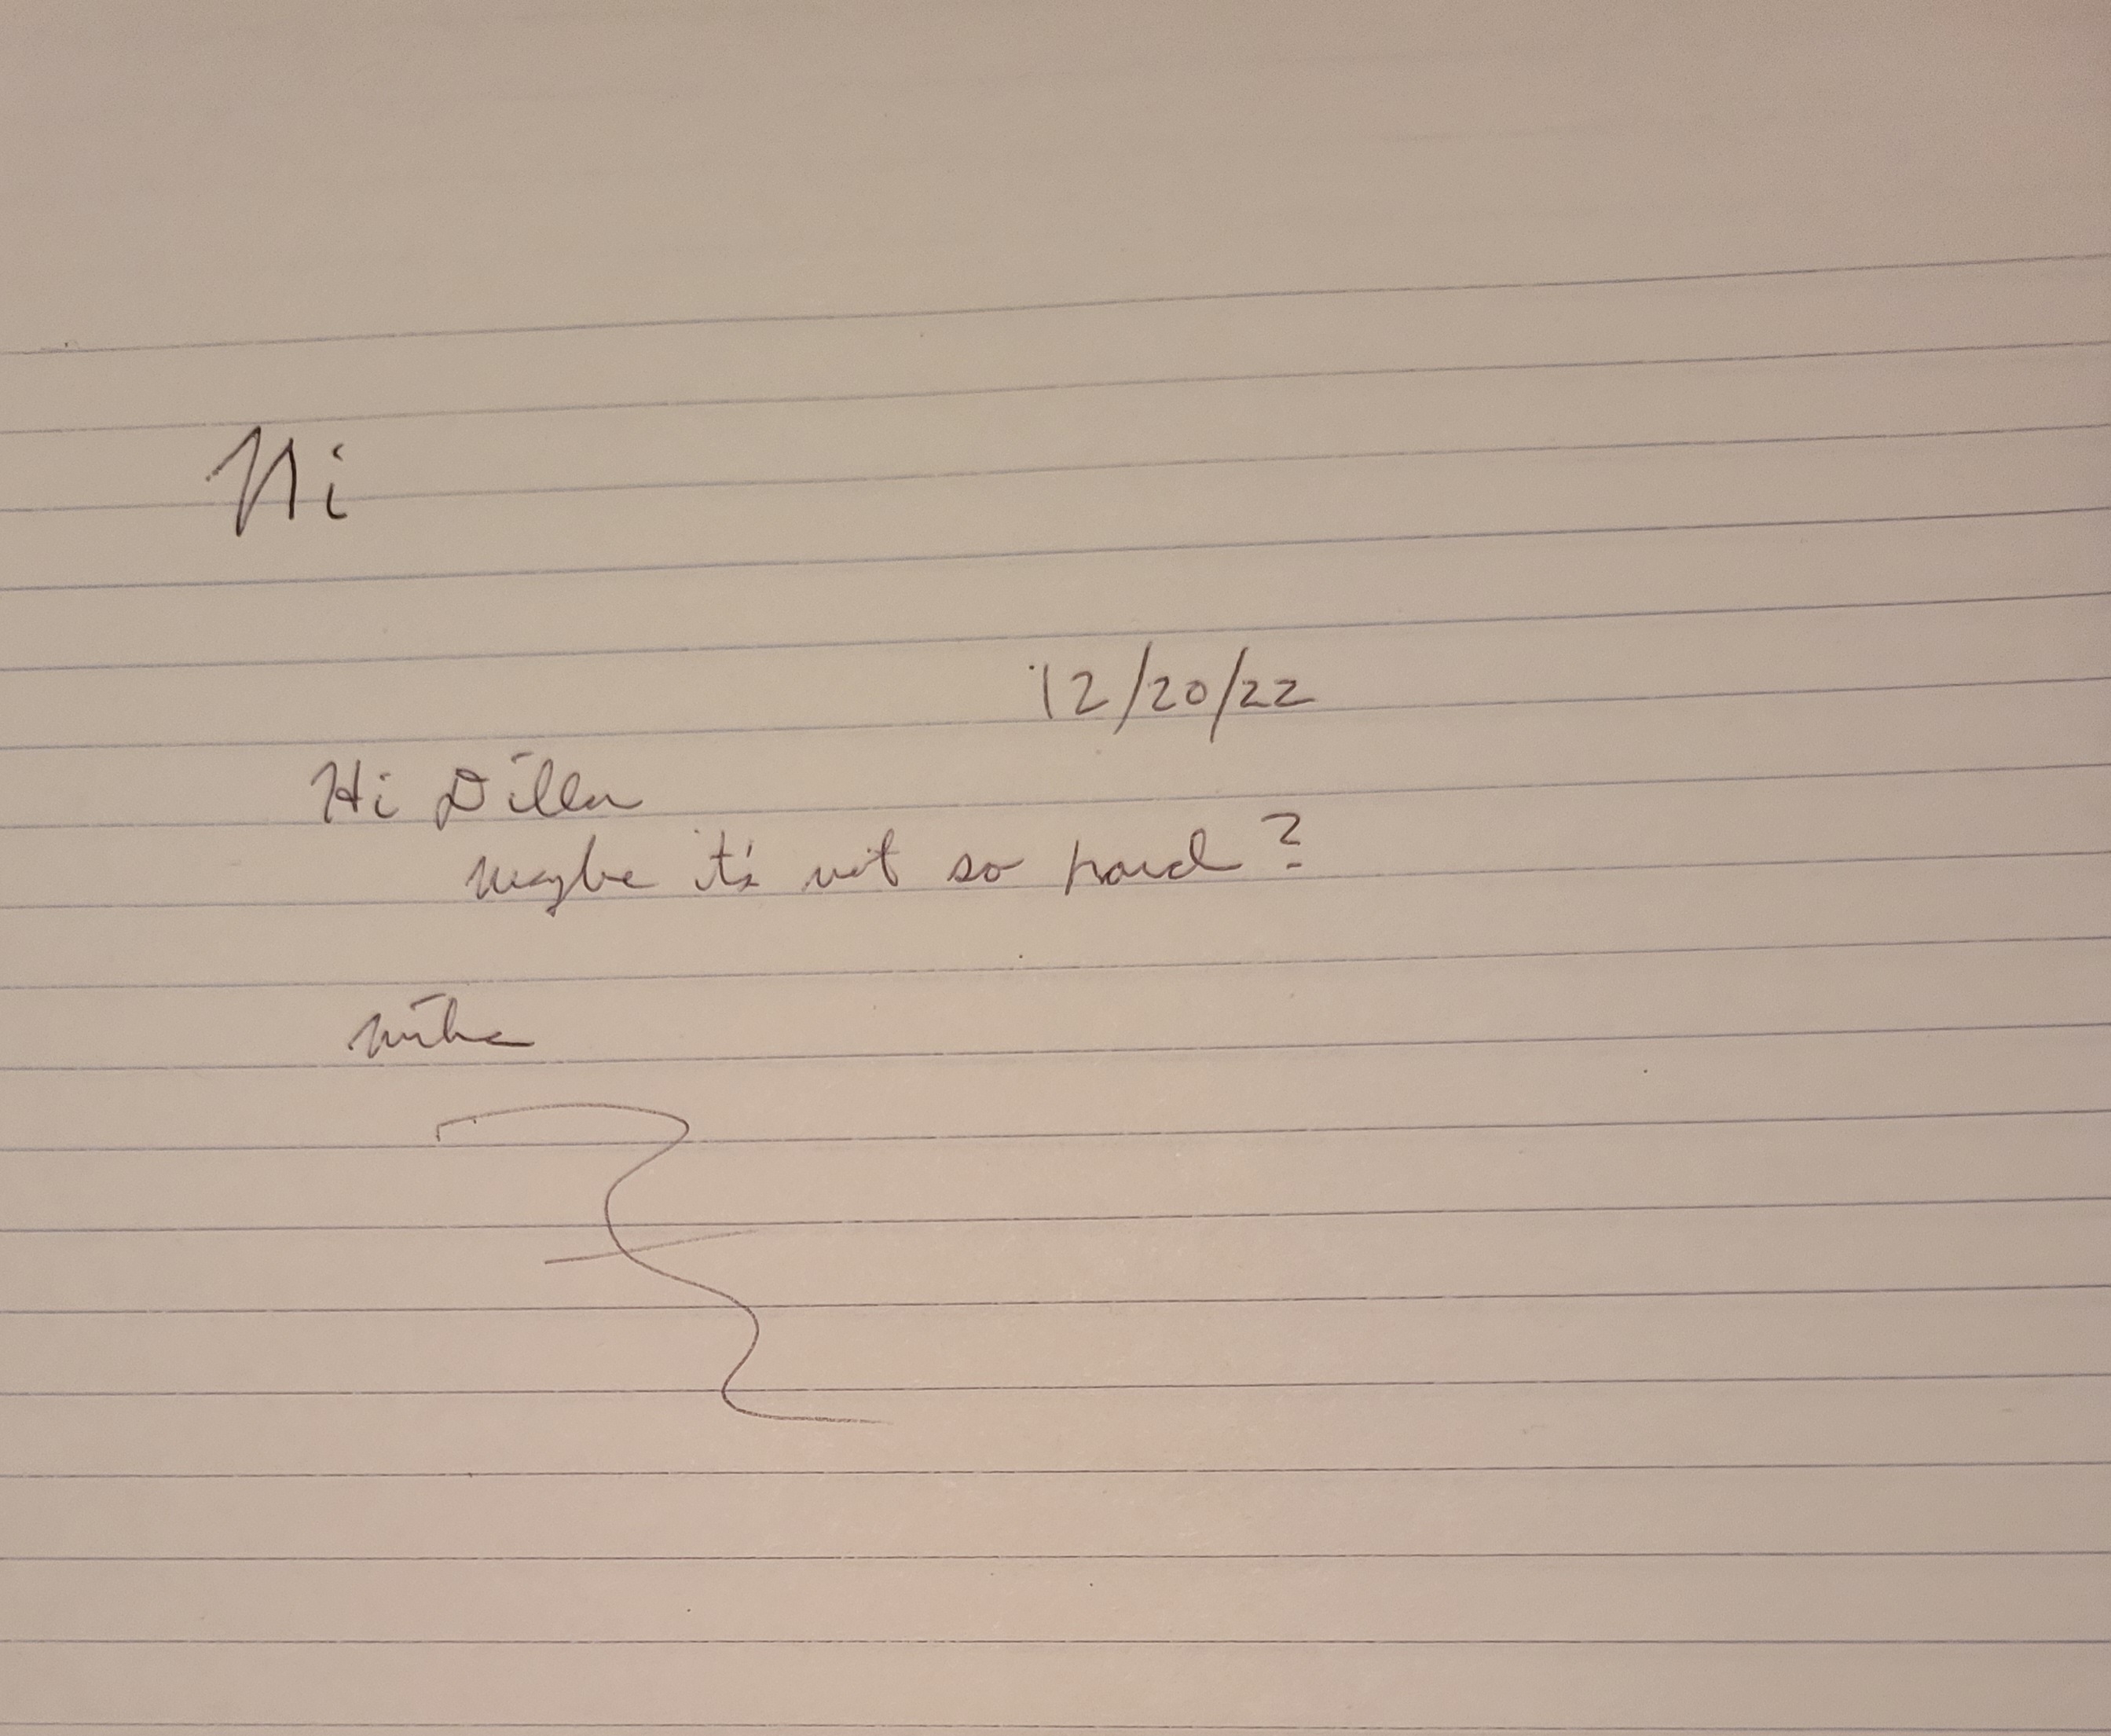 Hi
12/20/22
Hi Dillen
maybe it's not so hard?
Mike